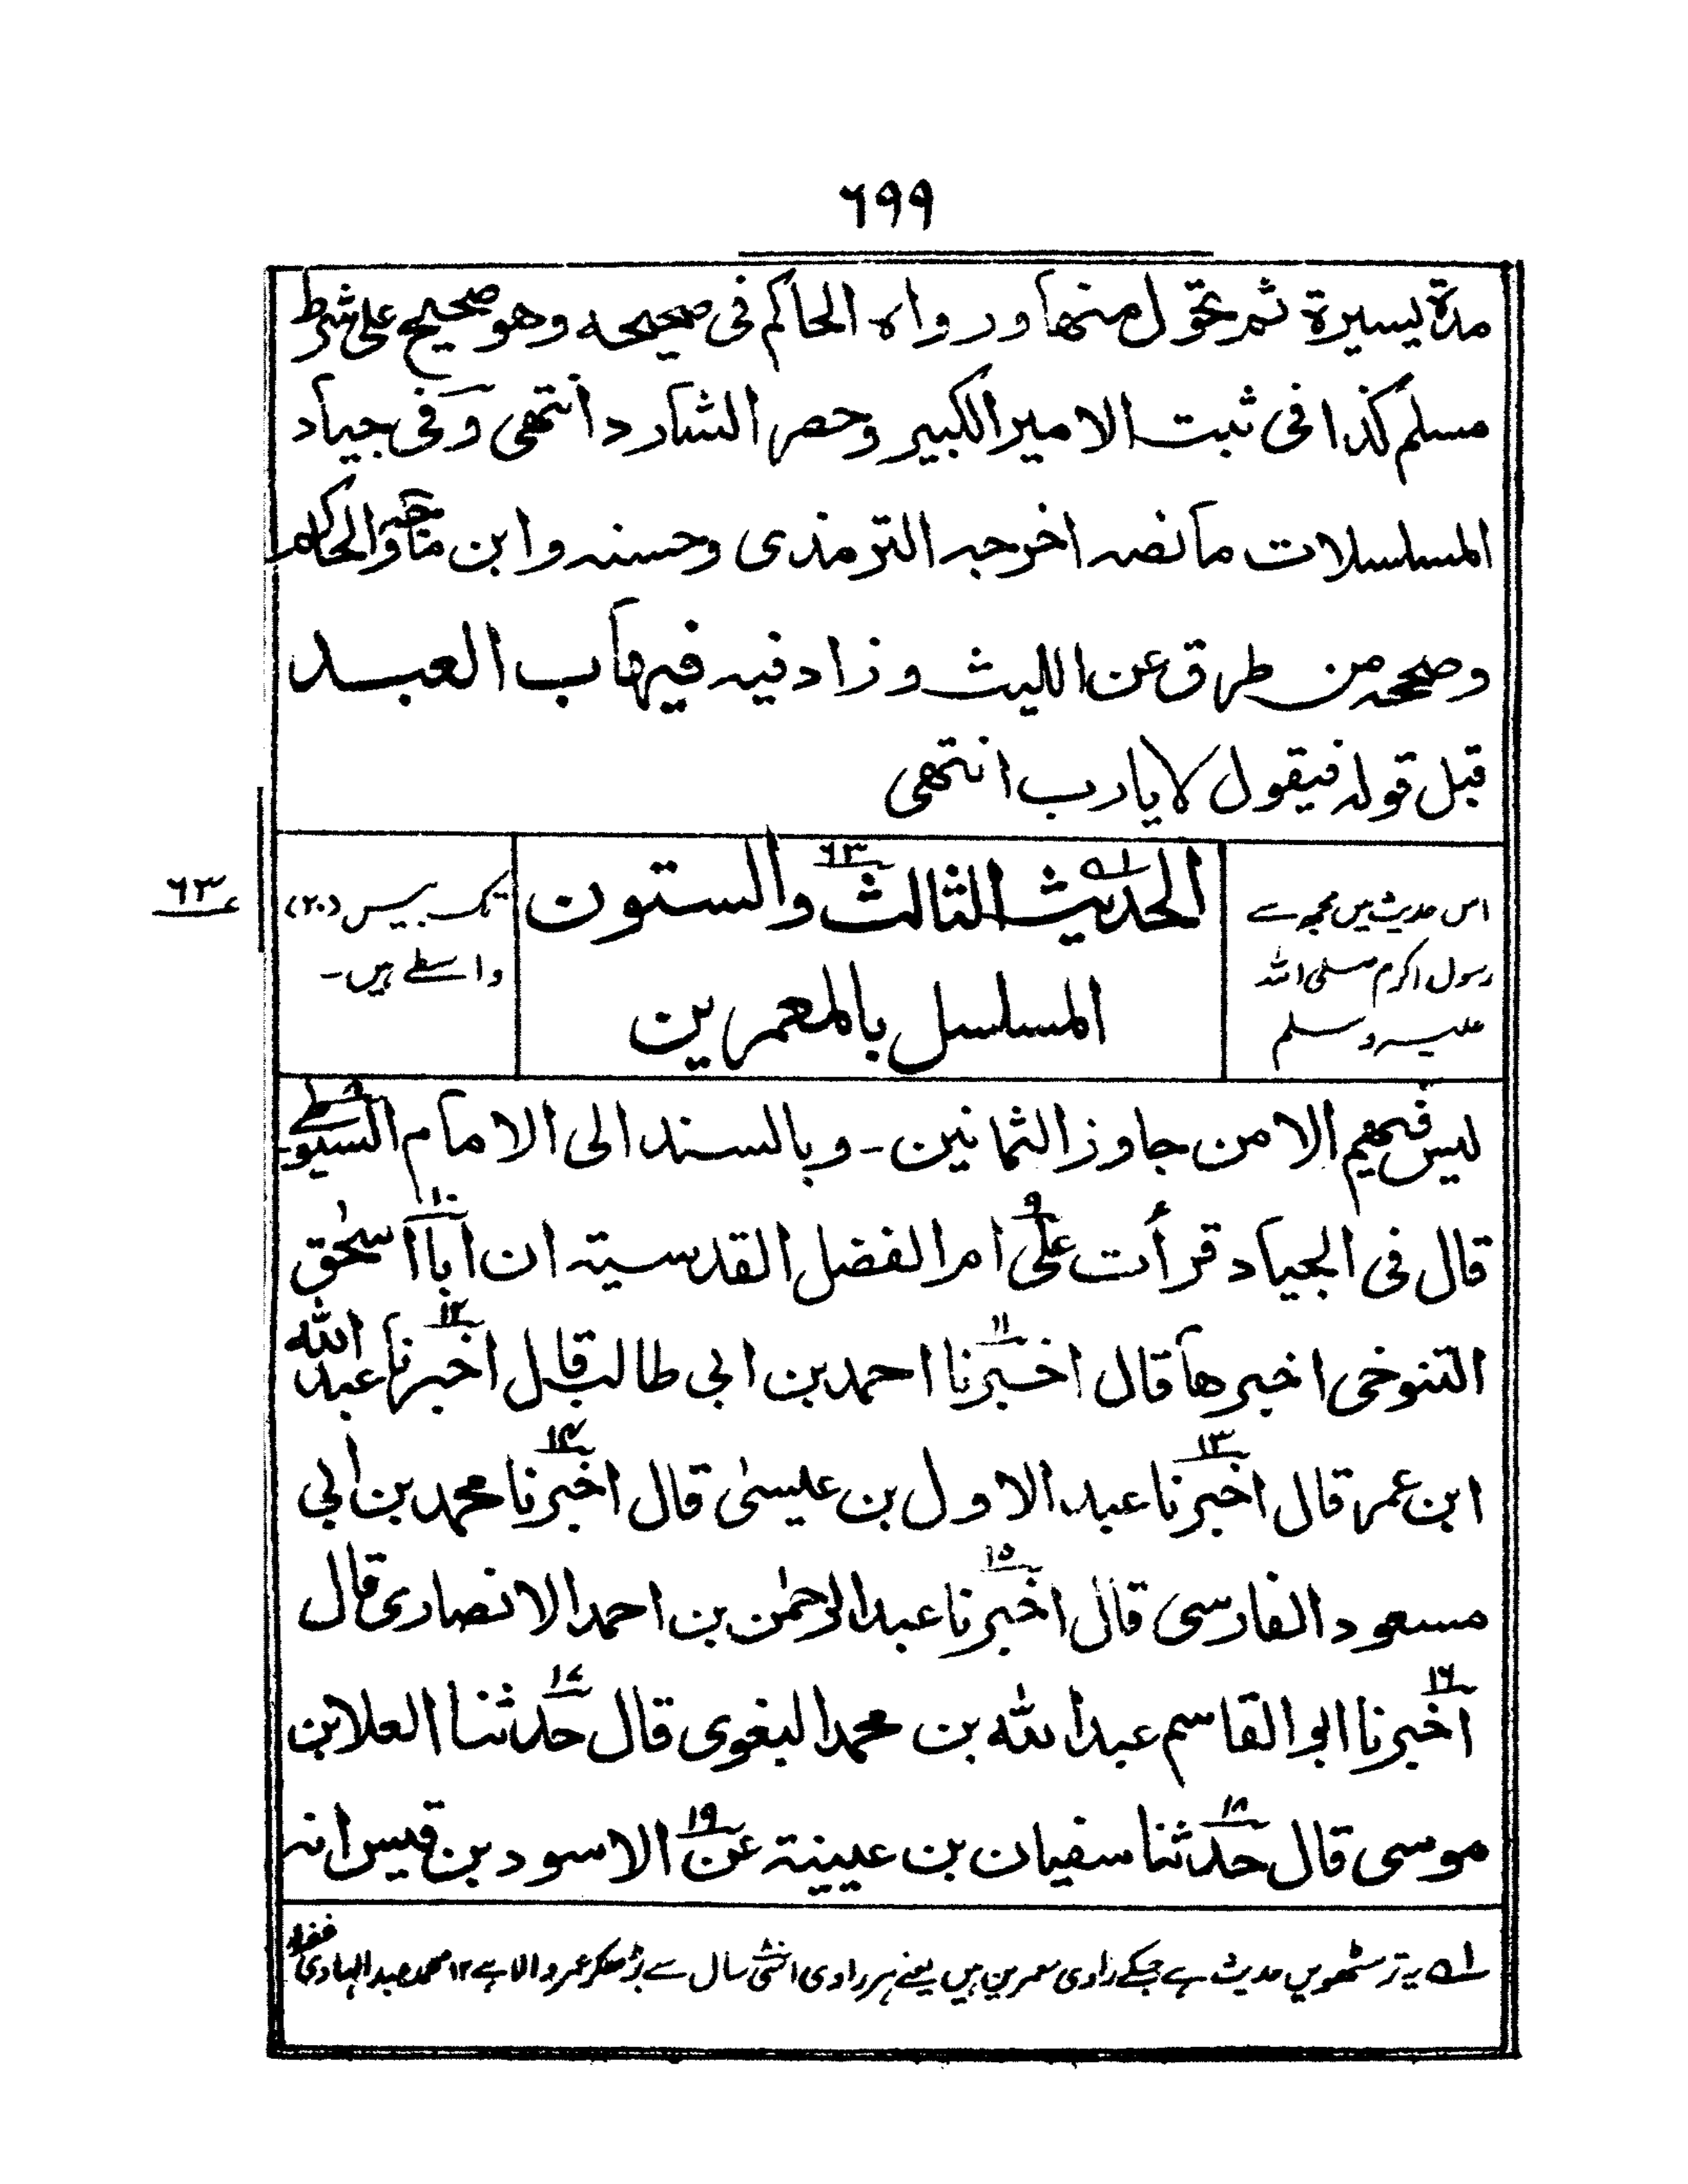 ٦٩٩
مدة يسيرة ثم تحول منها ورواه الحاكم فى صحيحه وهو صحيح على شرط
مسلم كذا فى ثبت الامير الكبير وحصر الشارد انتهى وفى جياد
المسلسلات ما نصه اخرجه الترمذى وحسنه وابن ماجه والحاكم
وصححه من طرق عن الليث وزاد فيه فيهاب العبد
قبل قوله فيقول لا يارب انتهى
اس حدیث میں مجھ سے
رسول اکرم صلی اللہ
علیہ وسلم
٦٣
الحديث الثالث والستون
المسلسل بالمعمرين
تک بیس (۲۰)
واسطے ہیں۔
٦٣
ليس فيهم الا من جاوز الثمانين - وبالسند الى الامام السيوطى
قال فى الجياد قرأت على ام الفضل القدسية ان ابا اسحٰق
التنوخى اخبرها قال اخبرنا احمد بن ابى طالب قال اخبرنا عبد الله
ابن عمر قال اخبرنا عبد الاول بن عيسىٰ قال اخبرنا محمد بن ابى
مسعود الفارسى قال اخبرنا عبد الرحمٰن بن احمد الانصارى قال
اخبرنا ابو القاسم عبد الله بن محمد البغوى قال حدثنا العلا بن
موسى قال حدثنا سفيان بن عيينة عن الاسود بن قيس انه
لہ یہ ترسٹھویں حدیث ہے جسکے راوی معمرین ہیں یعنے ہر راوی اسّی سال سے بڑھکر عمر والا ہے ۱۲ محمد عبد الہادی غفرلہ